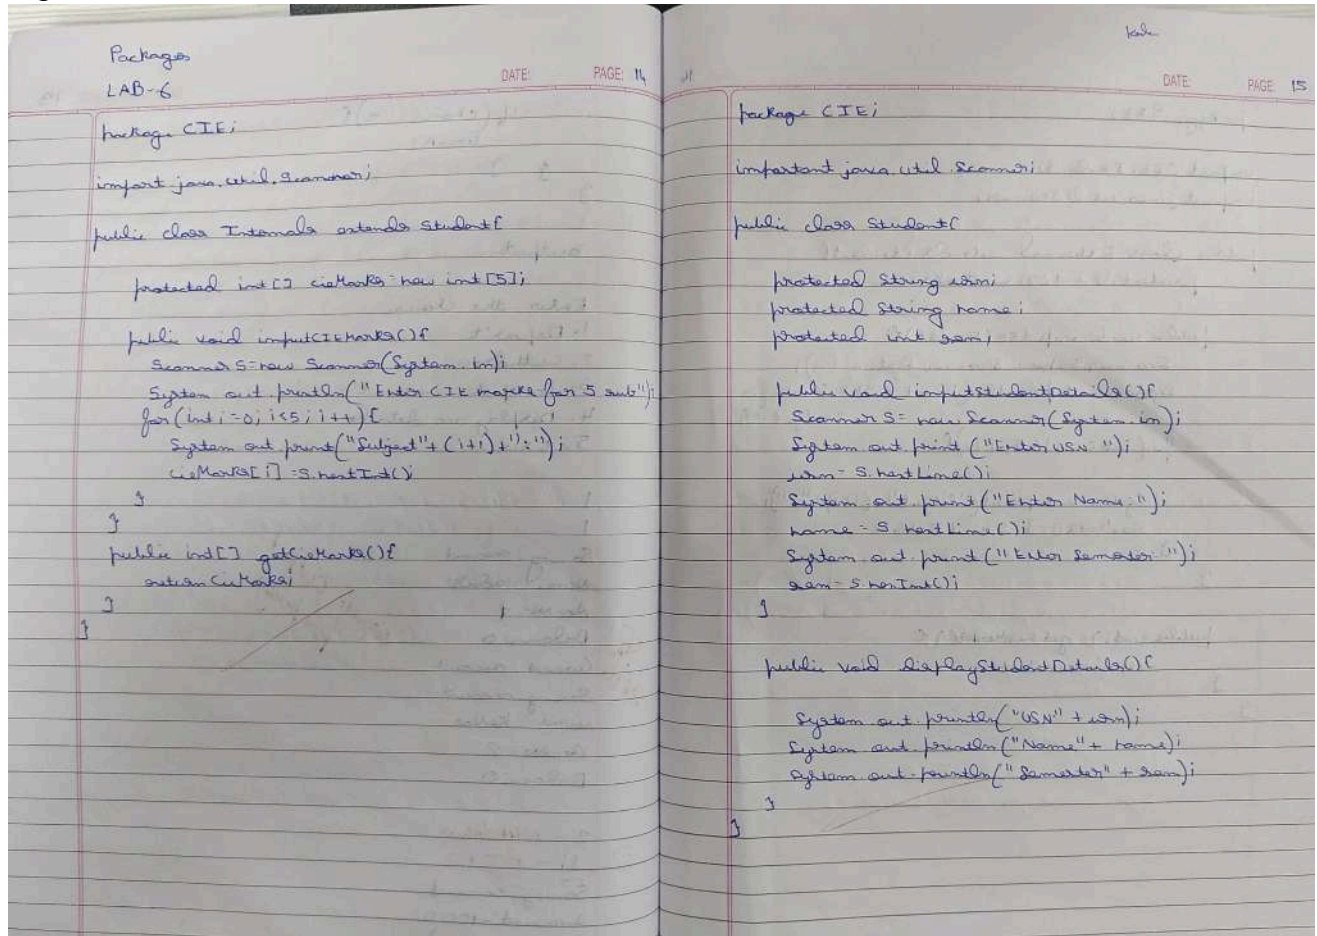 Packages
LAB-6
DATE: PAGE: 14
package CIE;
import java.util.Scanner;
public class Internals extends Student{
protected int[] cieMarks=new int[5];
public void inputCIEMarks(){
Scanner S=new Scanner(System.in);
System.out.println("Enter CIE marks for 5 sub");
for(int i=0; i<5; i++){
System.out.print("Subject"+(i+1)+":");
cieMarks[i]=S.nextInt();
}
}
public int[] getCieMarks(){
return CieMarks;
}
}
DATE: PAGE: 15
package CIE;
important java.util.Scanner;
public class Student{
protected String usn;
protected String name;
protected int sem;
public void inputStudentDetails(){
Scanner S= new Scanner(System.in);
System.out.print("Enter USN:");
usn= S.nextLine();
System.out.print("Enter Name:");
name = S.nextLine();
System.out.print("Enter Semester:");
sem= S.nexInt();
}
public void displayStudentDetails(){
System.out.println("USN" + usn);
System.out.println("Name"+ name);
System.out.println("Semester" + sem);
}
}